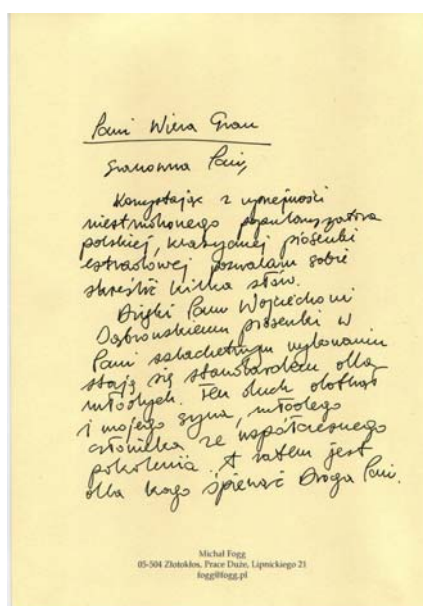 Pani Wiera Gran
Szanowna Pani,
Korzystając z uprzejmości
niestrudzonego popularyzatora
polskiej, klasycznej piosenki
estradowej pozwalam sobie
skreślić kilka słów.
Dzięki Panu Wojciechowi
Dąbrowskiemu piosenki w
Pani szlachetnym wykonaniu
stają się standardem dla
młodych. Ten duch dotknął
i mojego syna, młodego
człowieka ze współczesnego
pokolenia. A zatem jest
dla kogo śpiewać Droga Pani.
Michał Fogg
05-504 Złotokłos, Prace Duże, Lipnickiego 21
fogg@fogg.pl